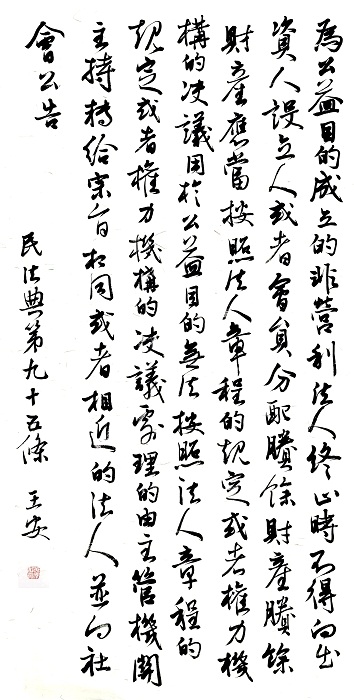 為公益目的成立的非營利法人終止時不得向出
資人設立人或者會員分配賸餘財產賸餘
財產應當按照法人章程的規定或者權力機
構的決議用於公益目的無法按照法人章程的
規定或者權力機構的決議處理的由主管機關
主持轉給宗旨相同或者相近的法人並向社
會公告
民法典第九十五條 王安